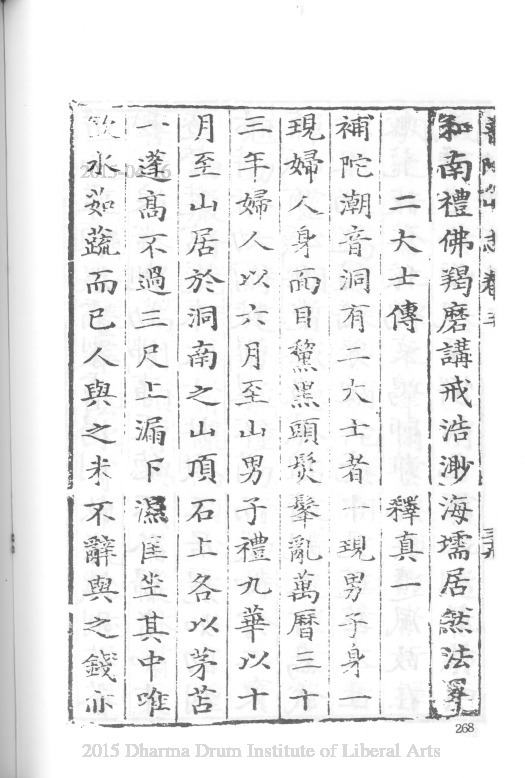 普陀山志卷五
三九
和南禮佛羯磨講戒浩渺海壖居然法
二大士傳
釋真一
補陀潮音洞有二大士者一現男子身一
現婦人身面目黧黑頭髮髼亂萬曆三十
三年婦人以六月至山男子禮九華以十
月至山居於洞南之山頂石上各以茅苫
一蓬高不過三尺上漏下濕匡坐其中唯
飲水茹蔬而已人與之米不辭與之錢亦
268
2015 Dharma Drum Institute of Liberal Arts